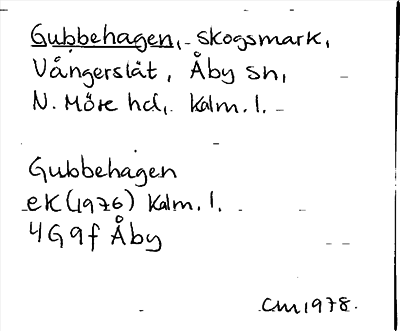 Gubbehagen, skogsmark,
Vångerslät, Åby sn,
N. Möre hd, Kalm. l.
Gubbehagen
eK (1976) Kalm. l.
4G9f Åby
CM 1978.